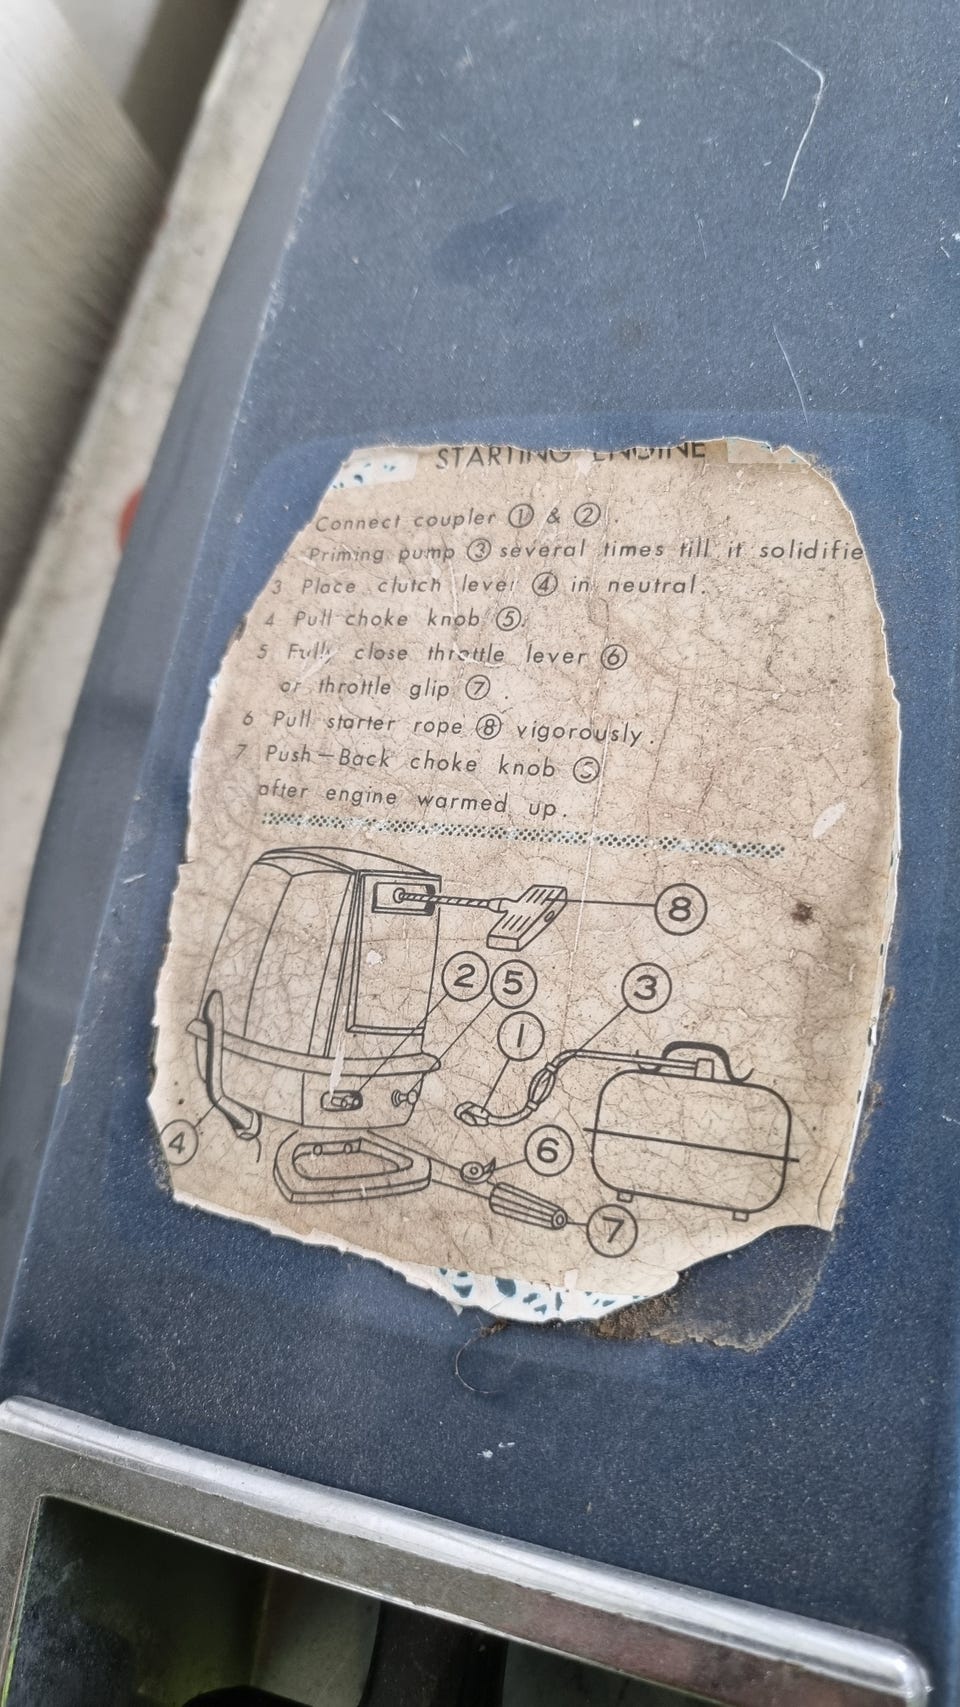 STARTING ENGINE
Connect coupler ① & ②.
Priming pump ③ several times till it solidifie
3 Place clutch lever ④ in neutral.
4 Pull choke knob ⑤.
5 Fully close throttle lever ⑥
or throttle glip ⑦.
6 Pull starter rope ⑧ vigorously.
7 Push-Back choke knob ⑤
after engine warmed up.
⑧
② ⑤
③
①
④
⑥
⑦